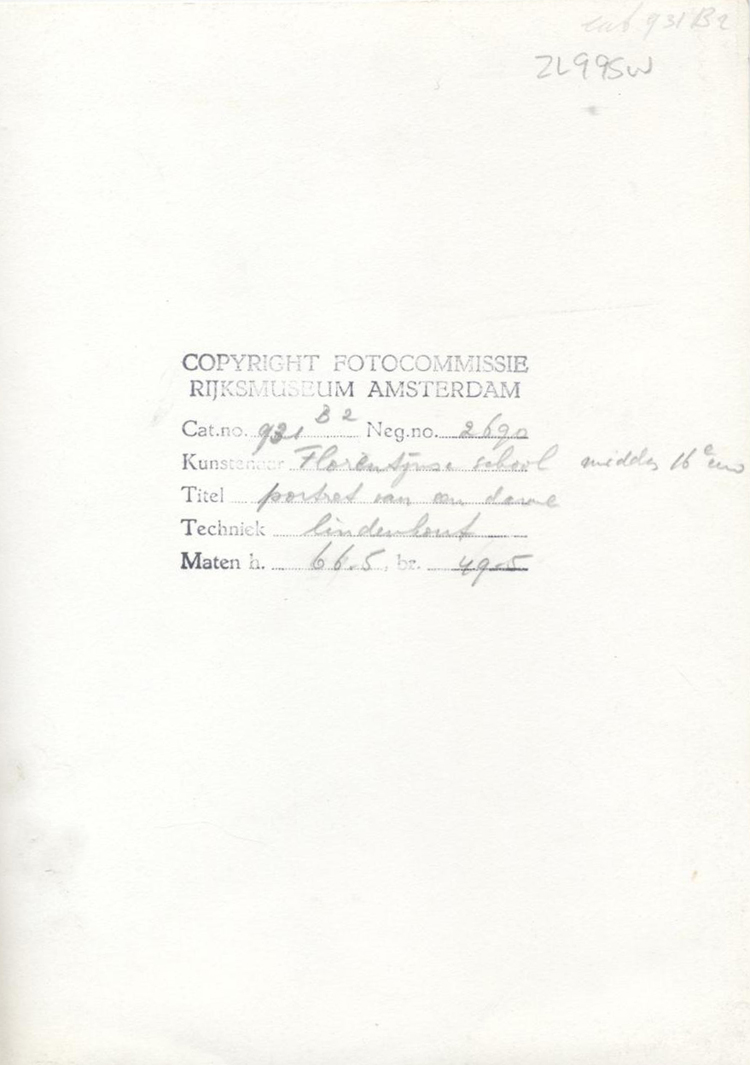 cat 931 B2
ZL99SW
COPYRIGHT FOTOCOMMISSIE
RIJKSMUSEUM AMSTERDAM
Cat.no. 931 B2 Neg.no. 2690
Kunstenaar Florentijnse school midden 16e eeuw
Titel portret van een dame
Techniek lindenhout
Maten h. 66.5, br. 49.5